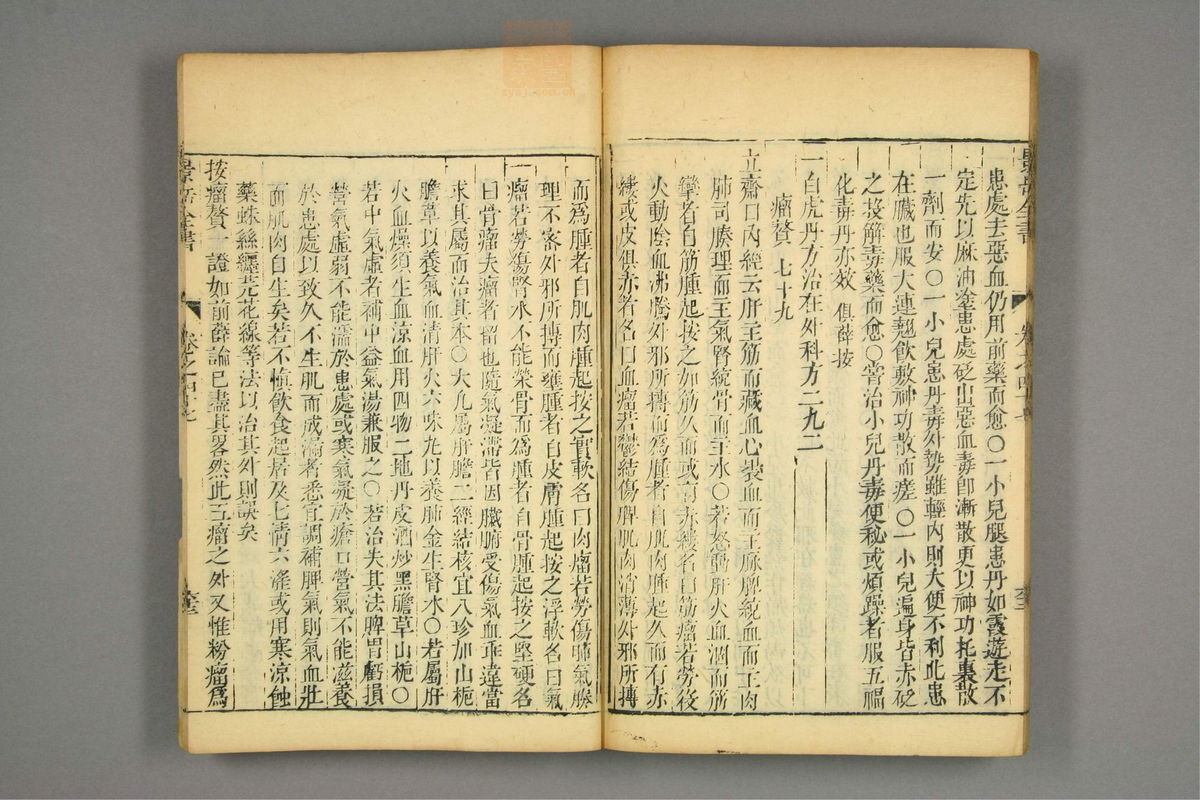 患處去惡血仍用前藥而愈〇一小兒腿患丹如霞遊走不
定先以麻油塗患處砭出惡血毒卽漸散更以神功托裏散
一劑而安〇一小兒患丹毒外勢雖輕內則大便不利此患
在臟也服大連翹飲敷神功散而瘥〇一小兒遍身皆赤砭
之投解毒藥而愈〇嘗治小兒丹毒便秘或煩躁者服五福
化毒丹亦效 俱薛按
一白虎丹方治在外科方二九二
瘤贅 七十九
立齋曰內經云肝主筋而藏血心裊血而主脉脾統血而主肉
肺司腠理而主氣腎統骨而主水〇若怒動肝火血涸而筋
攣者自筋腫起按之如筋久而或有赤縷名曰筋瘤若勞役
火動陰血沸騰外邪所搏而爲腫者自肌肉腫起久而有赤
縷或皮俱赤者名曰血瘤若鬱結傷脾肌肉消薄外邪所搏
而爲腫者自肌肉腫起按之實軟名曰肉瘤若勞傷肺氣腠
理不密外邪所搏而壅腫者自皮膚腫起按之浮軟名曰氣
瘤若勞傷腎水不能榮骨而爲腫者自骨腫起按之堅硬名
曰骨瘤夫瘤者留也隨氣凝滯皆因臟腑受傷氣血乖違當
求其屬而治其本〇大凡屬肝膽二經結核宜八珍加山梔
膽草以養氣血清肝火六味丸以養肺金生腎水〇若屬肝
火血燥須生血涼血用四物二地丹皮酒炒黑膽草山梔〇
若中氣虛者補中益氣湯兼服之〇若治失其法脾胃虧損
營氣虛弱不能濡於患處或寒氣凝於瘡口營氣不能滋養
於患處以致久不生肌而成漏者悉宜調補脾氣則氣血壯
而肌肉自生矣若不慎飲食起居及七情六淫或用寒涼蝕
藥蛛絲纏芫花線等法以治其外則誤矣
按瘤贅一證如前薛論已盡其畧然此五瘤之外又惟粉瘤爲
景岳全書
卷之四十七
景岳全書
卷之四十七
zysj.com.cn